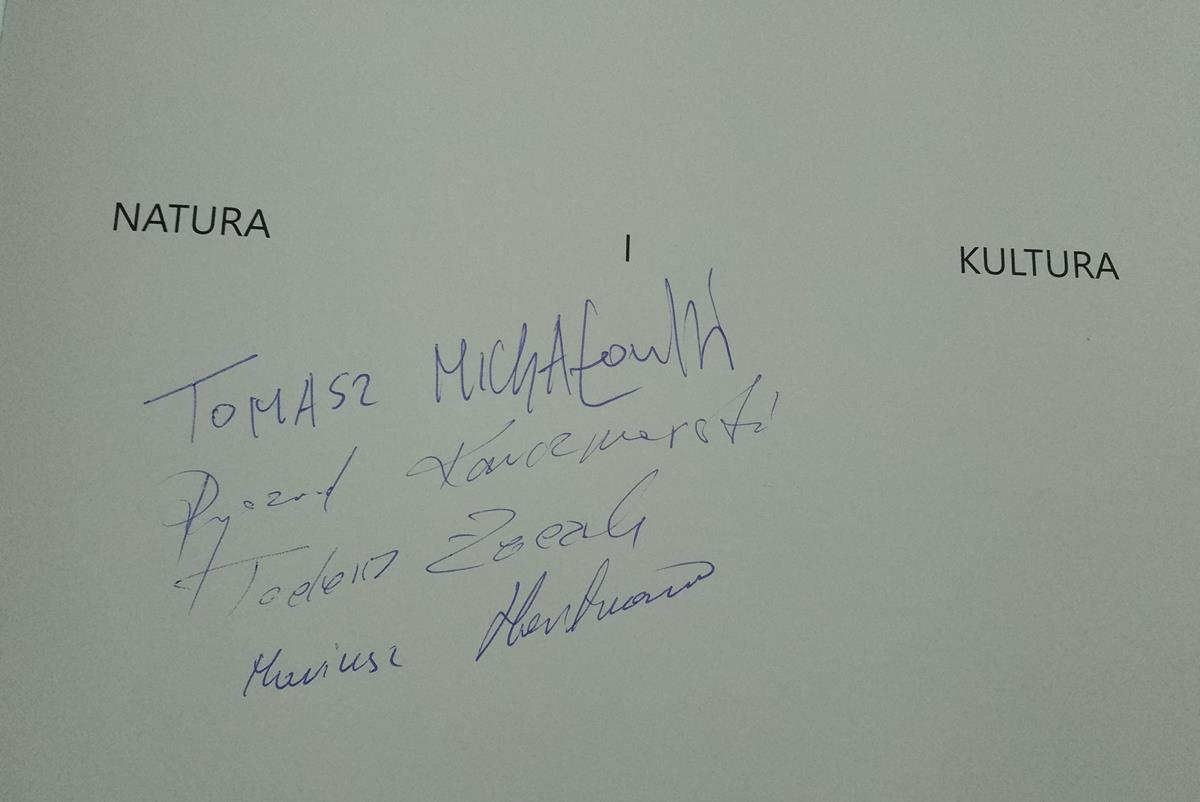 NATURA I KULTURA
TOMASZ MICHAŁOWSKI
Ryszard Kaczmarski
Tadeusz
Mariusz Hartmann